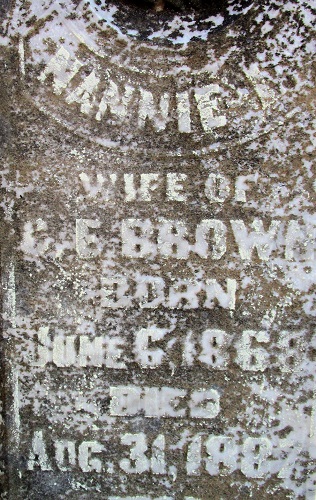 NANNIE
WIFE OF
E. BROWN
BORN
JUNE 6, 1868
DIED
AUG. 31, 1887